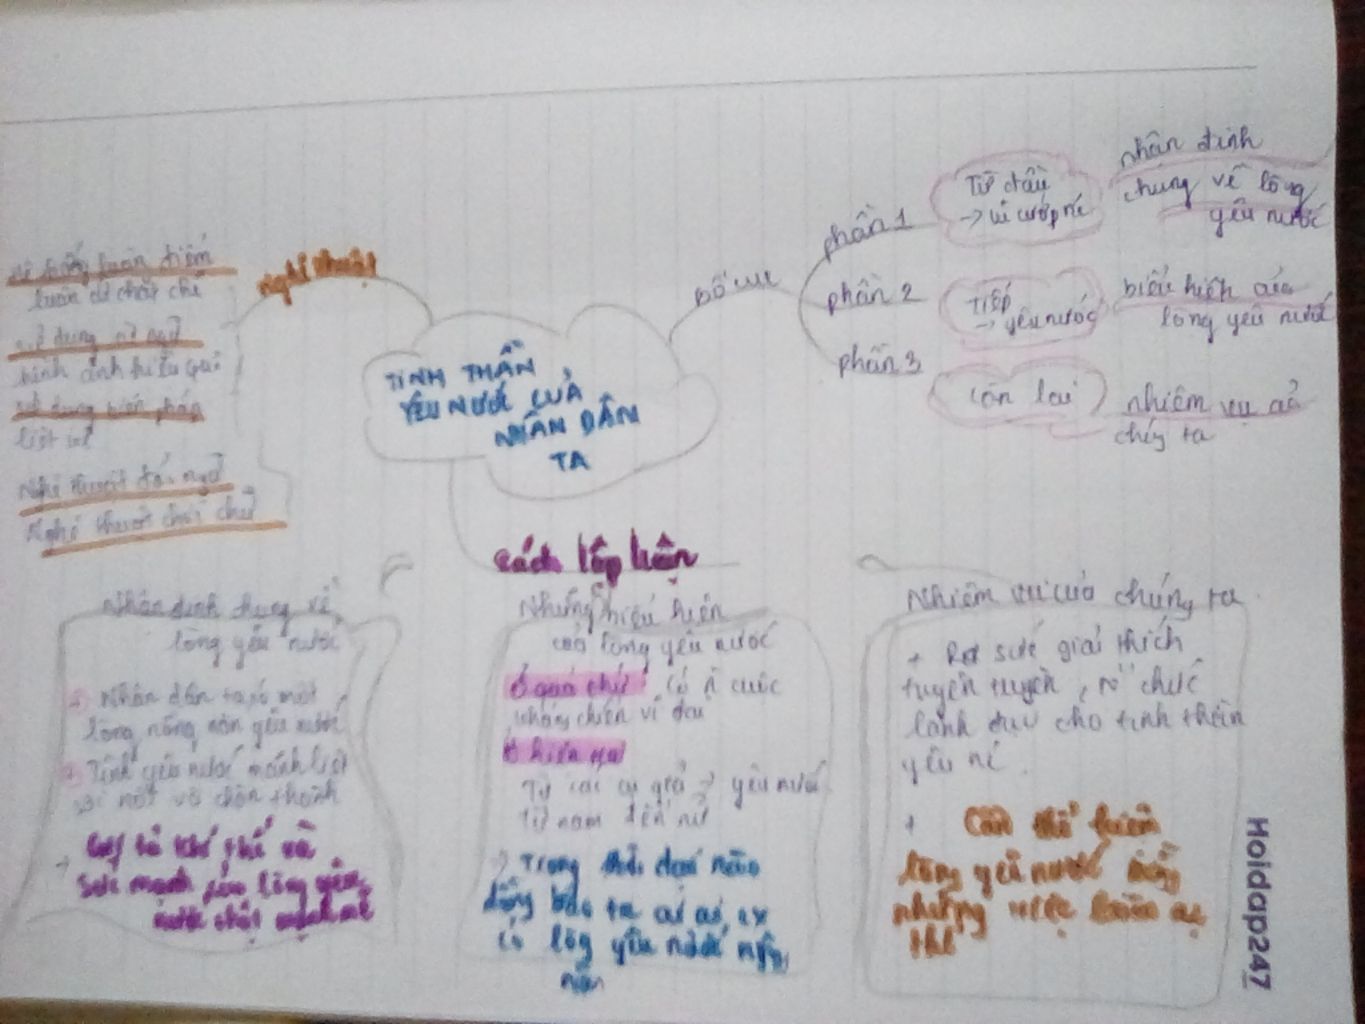 TINH THẦN
YÊU NƯỚC CỦA
NHÂN DÂN
TA
Bố cục
phần 1
Từ đầu
→ lũ cướp nc
nhận định
chung về lòng
yêu nước
phần 2
Tiếp
→ yêu nước
biểu hiện của
lòng yêu nước
phần 3
còn lại
nhiệm vụ củ
chúg ta
nghệ thuật
hệ thống luận điểm
luận cứ chặt chẽ
sử dụng từ ngữ
hình ảnh hiệu quả
sử dụng biện pháp
liệt kê
Nghệ thuật
Nghệ thuật chơi chữ
cách lập luận
Nhận định chung về
lòng yêu nước
Nhân dân ta có một
lòng nồng nàn yêu nước
Tình yêu nước mãnh liệt
và chân thành
+ Gợi tả khí thế và
sức mạnh của lòng yêu
nước
Những biểu hiện
của lòng yêu nước
Ở quá khứ: Có n cuộc
kháng chiến vĩ đại
Ở hiện tại
Từ các cụ già → yêu nước
Từ nam đến nữ
→ Trong thời đại nào
đồng bào ta
có lòg yêu nước nồng
nàn
Nhiệm vụ của chúng ta
+ Ra sức giải thích
tuyên truyền, tổ chức
lãnh đạo cho tinh thần
yêu nc
+ Cần thể hiện
lòng yêu nước bằng
những việc làm cụ
thể
Hoidap247